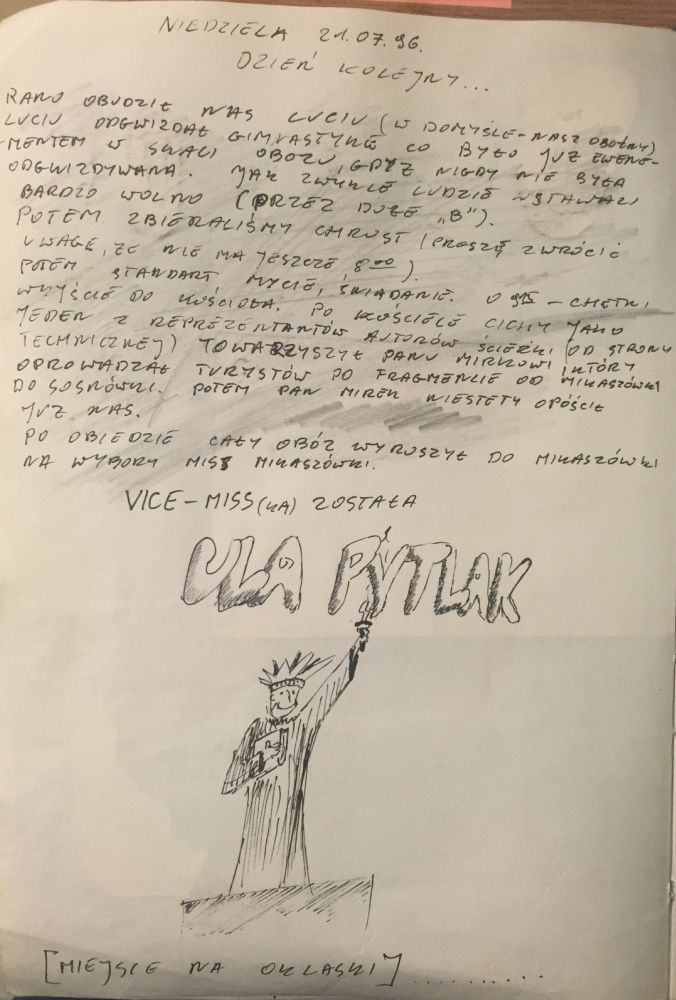 NIEDZIELA 21.07.96.
DZIEŃ KOLEJNY...
RANO OBUDZIŁ NAS LUCIU (W DOMYŚLE - NASZ OBOŹNY)
LUCIU ODGWIZDAŁ GIMNASTYKĘ CO BYŁO JUŻ EWENE-
MENTEM W SKALI OBOZU, GDYŻ NIGDY NIE BYŁA
ODGWIZDYWANA. JAK ZWYKLE LUDZIE WSTAWALI
BARDZO WOLNO (PRZEZ DUŻE „B").
POTEM ZBIERALIŚMY CHRUST (PROSZĘ ZWRÓCIĆ
UWAGĘ, ŻE NIE MA JESZCZE 8⁰⁰).
POTEM STANDART MYCIE, ŚNIADANIE. O 9¹⁵ - CHĘTNI
WYJŚCIE DO KOŚCIOŁA. PO KOŚCIELE CICHY JAKO
JEDEN Z REPREZENTANTÓW AUTORÓW ŚCIEŻKI (OD STRONY
TECHNICZNEJ) TOWARZYSZYŁ PANU MIRKOWI, KTÓRY
OPROWADZAŁ TURYSTÓW PO FRAGMENCIE OD MIKASZÓWKI
DO SOSNÓWKI. POTEM PAN MIREK NIESTETY OPÓŚCIŁ
JUŻ NAS.
PO OBIEDZIE CAŁY OBÓZ WYRUSZYŁ DO MIKASZÓWKI
NA WYBORY MISS MIKASZÓWKI.
VICE-MISS(KA) ZOSTAŁA
ULA PYTLAK
[MIEJSCE NA OKLASKI] .........